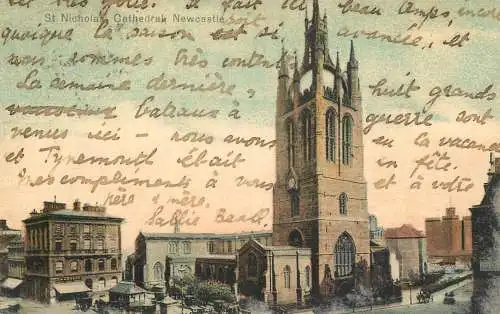 St Nicholas Cathedral, Newcastle.
il fait beau temps, ici,
quoique la saison est si avancée, et
nous sommes très contents
La semaine dernière, huit grands
vaisseaux bateaux de guerre sont
venues ici - nous avons eu la vacance
et Tynemouth était en fête.
mes compliments à et à votre
père & mère.
Sallie Beall.